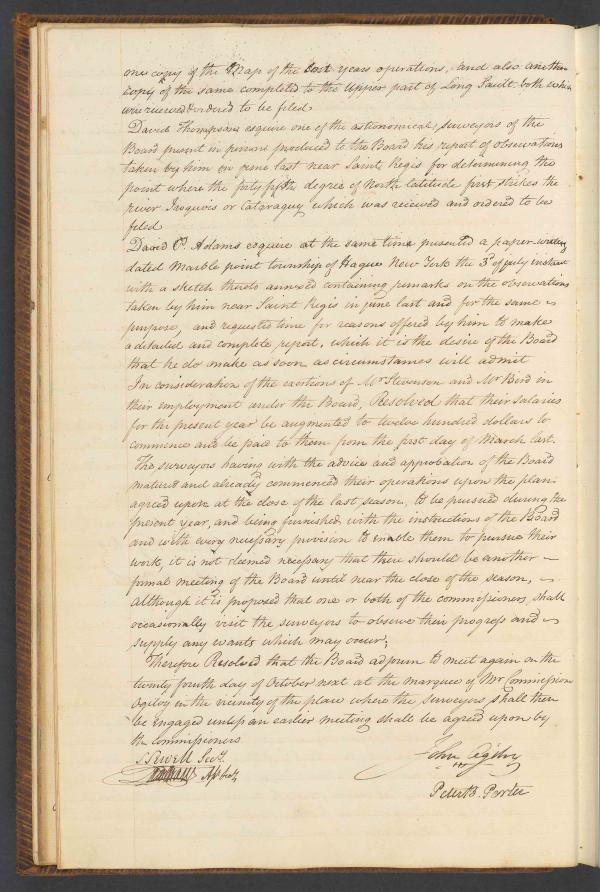 one copy of the Map of the last years operations, and also another
copy of the same completed to the upper part of Long Sault, both which
were received & ordered to be filed
David Thompson esquire one of the astronomical surveyors of the
Board present in person produced to the Board his report of observations
taken by him in june last near Saint Regis for determining the
point where the forty fifth degree of North latitude first strikes the
river Iroquois or Cataraguy which was received and ordered to be
filed
David P. Adams esquire at the same time presented a paper-writing
dated Marble point township of Hague New York the 3d of july instant
with a sketch thereto annexed containing remarks on the observations
taken by him near Saint Regis in june last and for the same
purpose, and requested time for reasons offered by him to make
a detailed and complete report, which it is the desire of the Board
that he do make as soon as circumstances will admit
In consideration of the exertions of Mr Stevenson and Mr Bird in
their employment under the Board, Resolved that their salaries
for the present year be augmented to twelve hundred dollars to
commence and be paid to them from the first day of March last.
The surveyors having with the advice and approbation of the Board
matured and already commenced their operations upon the plan
agreed upon at the close of the last season, to be pursued during the
present year, and being furnished with the instructions of the Board
and with every necessary provision to enable them to pursue their
work, it is not deemed necessary that there should be another
formal meeting of the Board until near the close of the season,
although it is proposed that one or both of the commissioners, shall
occasionally visit the surveyors to observe their progress and
supply any wants which may occur;
Therefore Resolved that the Board adjourn to meet again on the
twenty fourth day of October next at the marquee of Mr Commission
Ogilvy in the vicinity of the place where the surveyors shall then
be engaged unless an earlier meeting shall be agreed upon by
the commissioners
S. Sewell Secy.
John Ogilvy
Peter B. Porter